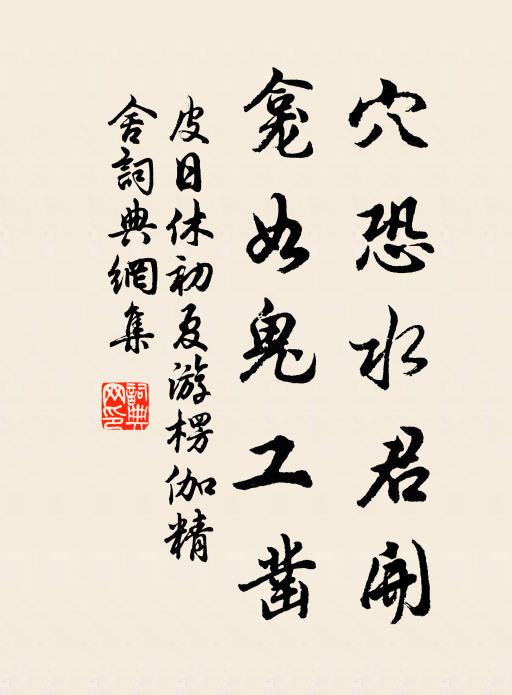 穴恐水君開
龕如鬼工鑿
皮日休初夏游楞伽精
舍詞典網集
詞典網印